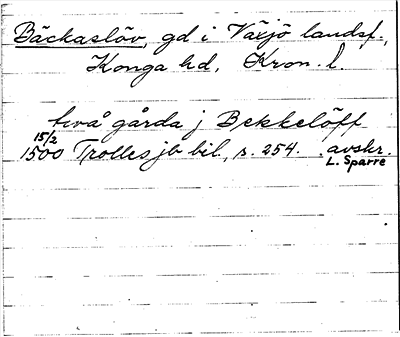 Bäckaslöv, gd i Växjö landsf.,
Konga hd, Kron. l.
två gårda j Bekkelöff
15/2
1500 Trolles jb bil., s. 254. avskr.
L. Sparre